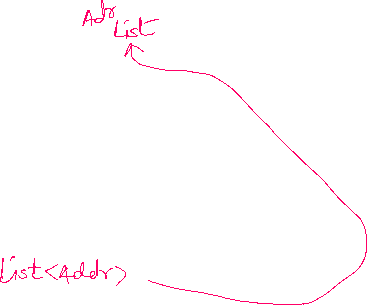 Adr
List
List<Addr>